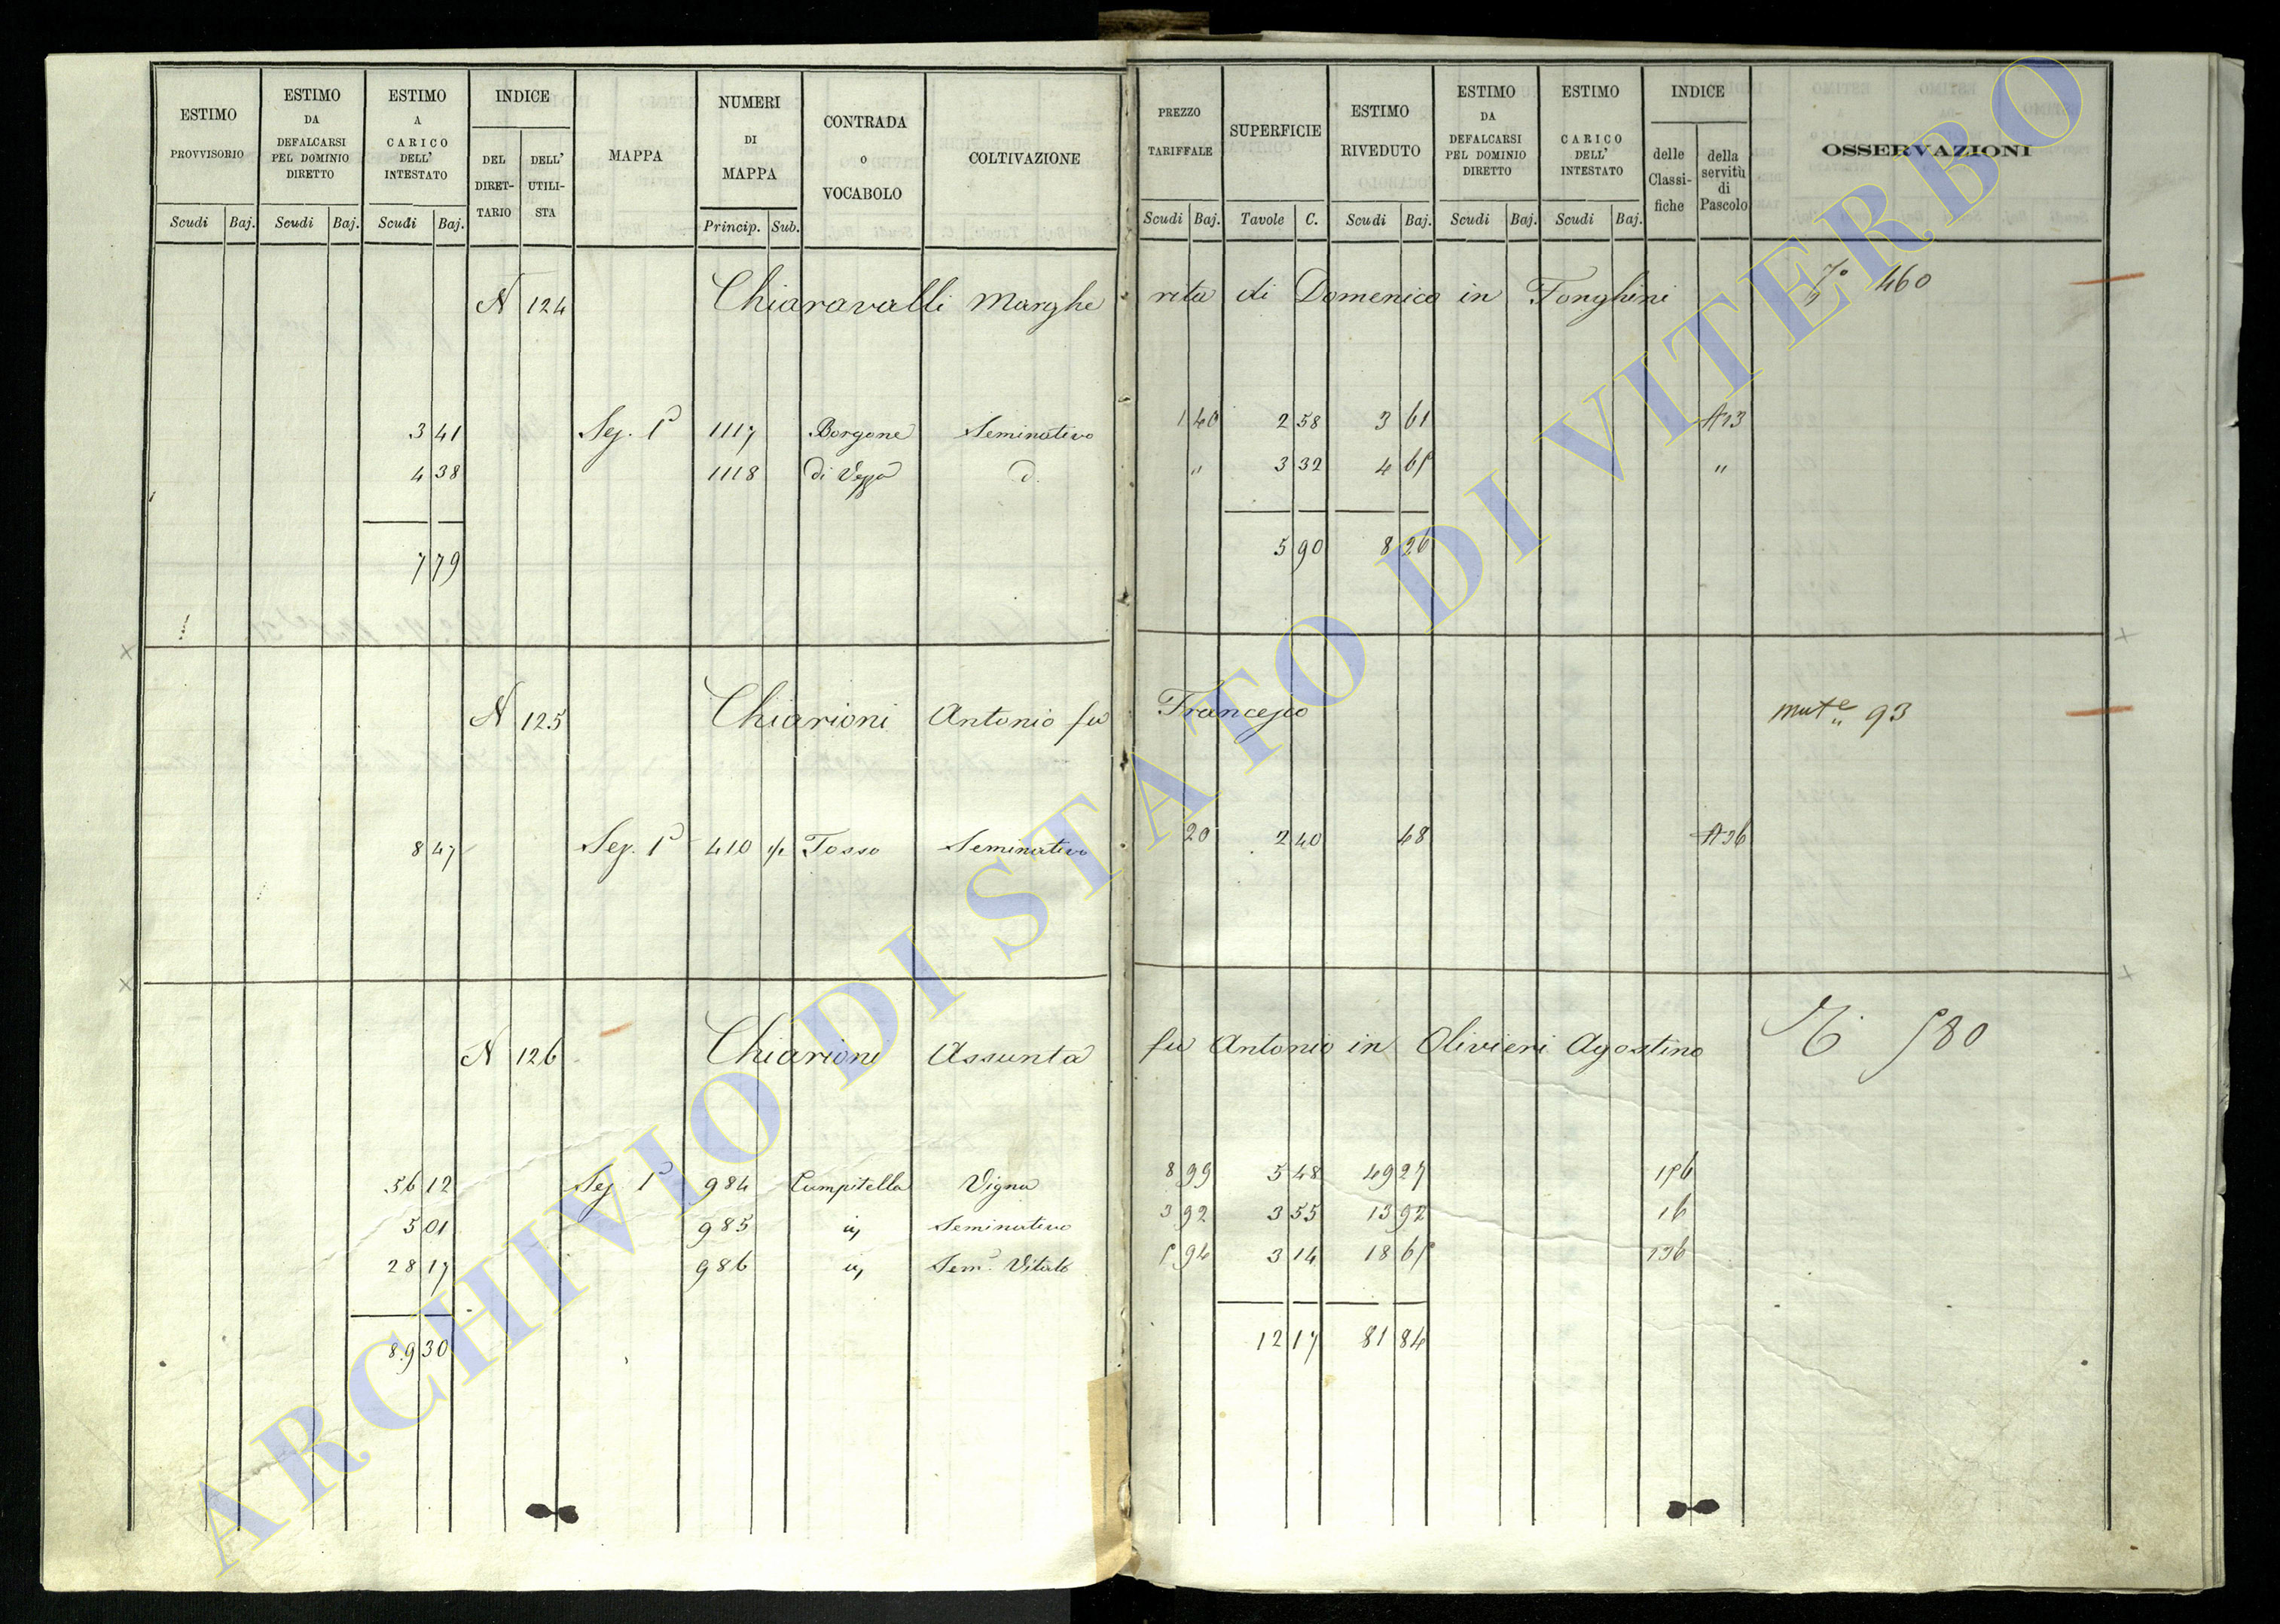 ESTIMO PROVVISORIO Scudi Baj.
ESTIMO DA DEFALCARSI PEL DOMINIO DIRETTO Scudi Baj.
ESTIMO A CARICO DELL' INTESTATO Scudi Baj.
INDICE DEL DIRET-TARIO DELL' UTILI-STA
MAPPA
NUMERI DI MAPPA Princip. Sub.
CONTRADA o VOCABOLO
COLTIVAZIONE
PREZZO TARIFFALE Scudi Baj.
SUPERFICIE Tavole C.
ESTIMO RIVEDUTO Scudi Baj.
ESTIMO DA DEFALCARSI PEL DOMINIO DIRETTO Scudi Baj.
ESTIMO CARICO DELL' INTESTATO Scudi Baj.
INDICE delle Classi-fiche della servitù di Pascolo
OSSERVAZIONI
N 124 Chiaravalli Marghe rita di Domenico in Fonghini 460
3 41 Sez. 1ª 1117 Borgone Seminativo 1 40 2 58 3 61 A 13
4 38 1118 di Vezza d. " 3 32 4 65 "
7 79 5 90 8 26
N 125 Chiarioni Antonio fu Francesco mut.e 93
8 47 Sez. 1ª 410 1/2 Fosso Seminativo 20 2 40 48 A 26
N 126 Chiarioni Assunta fu Antonio in Olivieri Agostino 580
56 12 Sez. 1ª 984 Campitella Vigna 8 99 5 48 49 27 156
5 01 985 ivi Seminativo 3 92 3 55 13 92 16
28 17 986 ivi Sem.º Vitato 5 94 3 14 18 65 136
89 30 12 17 81 84
ARCHIVIO DI STATO DI VITERBO